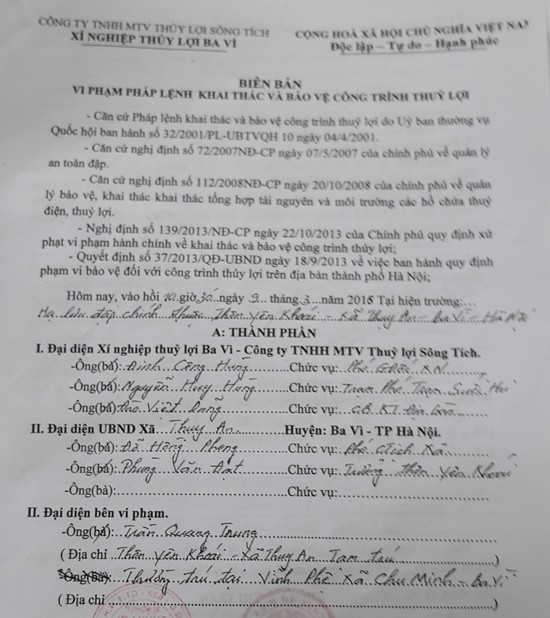 CÔNG TY TNHH MTV THỦY LỢI SÔNG TÍCH
XÍ NGHIỆP THỦY LỢI BA VÌ
CỘNG HOÀ XÃ HỘI CHỦ NGHĨA VIỆT NAM
Độc lập – Tự do – Hạnh phúc
BIÊN BẢN
VI PHẠM PHÁP LỆNH KHAI THÁC VÀ BẢO VỆ CÔNG TRÌNH THUỶ LỢI
- Căn cứ Pháp lệnh khai thác và bảo vệ công trình thuỷ lợi do Uỷ ban thường vụ
Quốc hội ban hành số 32/2001/PL-UBTVQH 10 ngày 04/4/2001.
- Căn cứ nghị định số 72/2007NĐ-CP ngày 07/5/2007 của chính phủ về quản lý
an toàn đập.
- Căn cứ nghị định số 112/2008NĐ-CP ngày 20/10/2008 của chính phủ về quản
lý bảo vệ, khai thác khai thác tổng hợp tài nguyên và môi trường các hồ chứa thuỷ
điện, thuỷ lợi.
- Nghị định số 139/2013/NĐ-CP ngày 22/10/2013 của Chính phủ quy định xử
phạt vi phạm hành chính về khai thác và bảo vệ công trình thủy lợi;
- Quyết định số 37/2013/QĐ-UBND ngày 18/9/2013 về việc ban hành quy định
phạm vi bảo vệ đối với công trình thủy lợi trên địa bàn thành phố Hà Nội;
Hôm nay, vào hồi 10 giờ 30 ngày 9 tháng 3 năm 2016 Tại hiện trường:
Hạ lưu đập chính thuộc Thôn Yên Khoái - Xã Thụy An - Ba Vì - Hà Nội
A: THÀNH PHẦN
I. Đại diện Xí nghiệp thuỷ lợi Ba Vì - Công ty TNHH MTV Thuỷ lợi Sông Tích.
-Ông(bà): Đinh Công Hùng Chức vụ: Phó G.Đốc XN
-Ông(bà): Nguyễn Huy Hoàng Chức vụ: Trạm Phó Trạm Suối Hai
-Ông(bà): Đào Việt Dũng Chức vụ: CB KT
II. Đại diện UBND Xã Thụy An Huyện: Ba Vì - TP Hà Nội.
-Ông(bà): Đỗ Hồng Phong Chức vụ: Phó CTịch Xã
-Ông(bà): Phùng Văn Đạt Chức vụ: Trưởng Thôn Yên Khoái
-Ông(bà): Chức vụ:
II. Đại diện bên vi phạm.
-Ông(bà): Trần Quang Trung
( Địa chỉ Thôn Yên Khoái - Xã Thụy An Tạm trú )
-Ông(bà): Thường trú tại Vĩnh Phệ Xã Chu Minh - Ba Vì
( Địa chỉ )